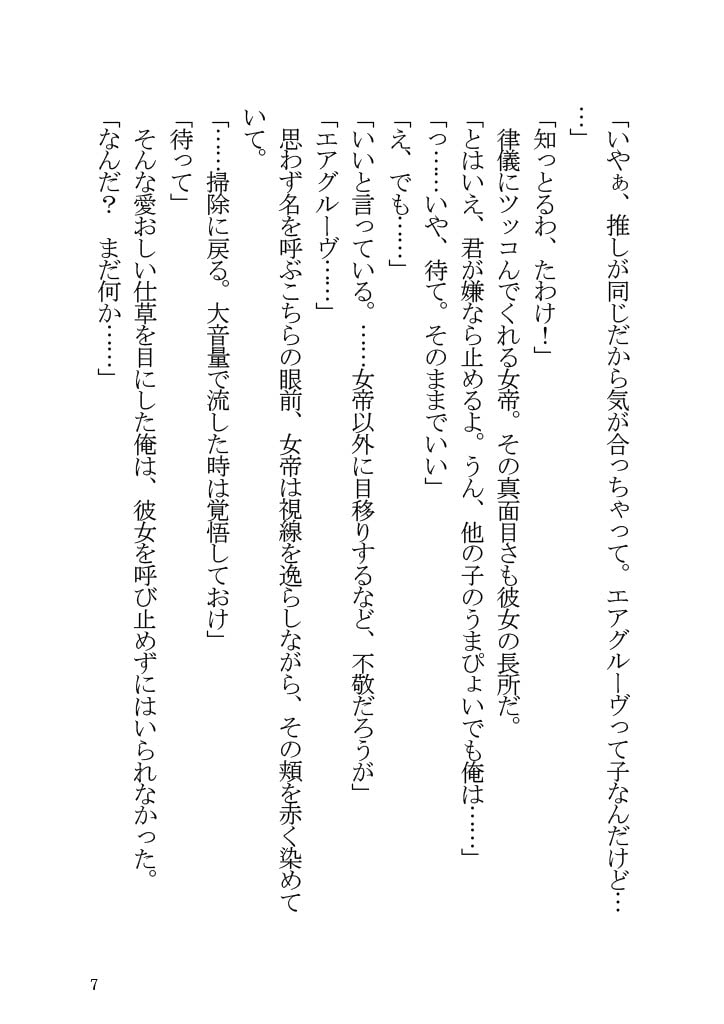 「いやぁ、推しが同じだから気が合っちゃって。エアグルーヴって子なんだけど…
…」
「知っとるわ、たわけ！」
律儀にツッコんでくれる女帝。その真面目さも彼女の長所だ。
「とはいえ、君が嫌なら止めるよ。うん、他の子のうまぴょいでも俺は……」
「っ……いや、待て。そのままでいい」
「え、でも……」
「いいと言っている。……女帝以外に目移りするなど、不敬だろうが」
「エアグルーヴ……」
思わず名を呼ぶこちらの眼前、女帝は視線を逸らしながら、その頬を赤く染めて
いて。
「……掃除に戻る。大音量で流した時は覚悟しておけ」
「待って」
そんな愛おしい仕草を目にした俺は、彼女を呼び止めずにはいられなかった。
「なんだ？　まだ何か……」
7